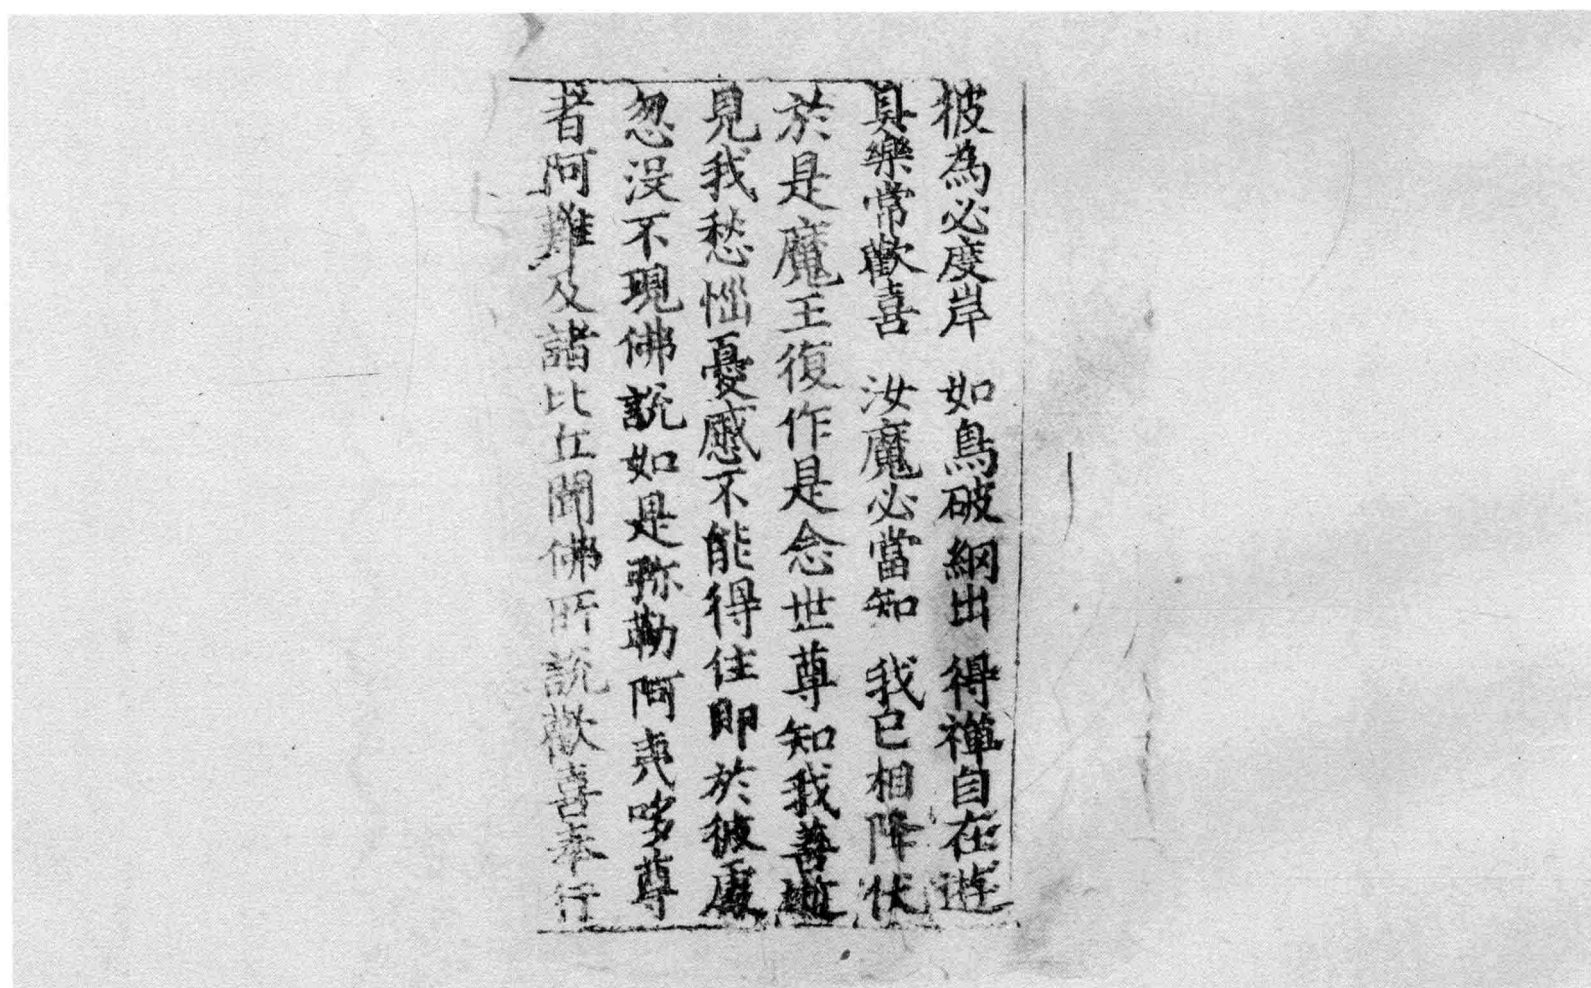 彼為必度岸　如鳥破網出　得禪自在遊
具樂常歡喜　汝魔必當知　我已相降伏
於是魔王復作是念世尊知我善逝
見我愁惱憂慼不能得住即於彼處
忽沒不現佛說如是弥勒阿夷哆尊
者阿難及諸比丘聞佛所說歡喜奉行